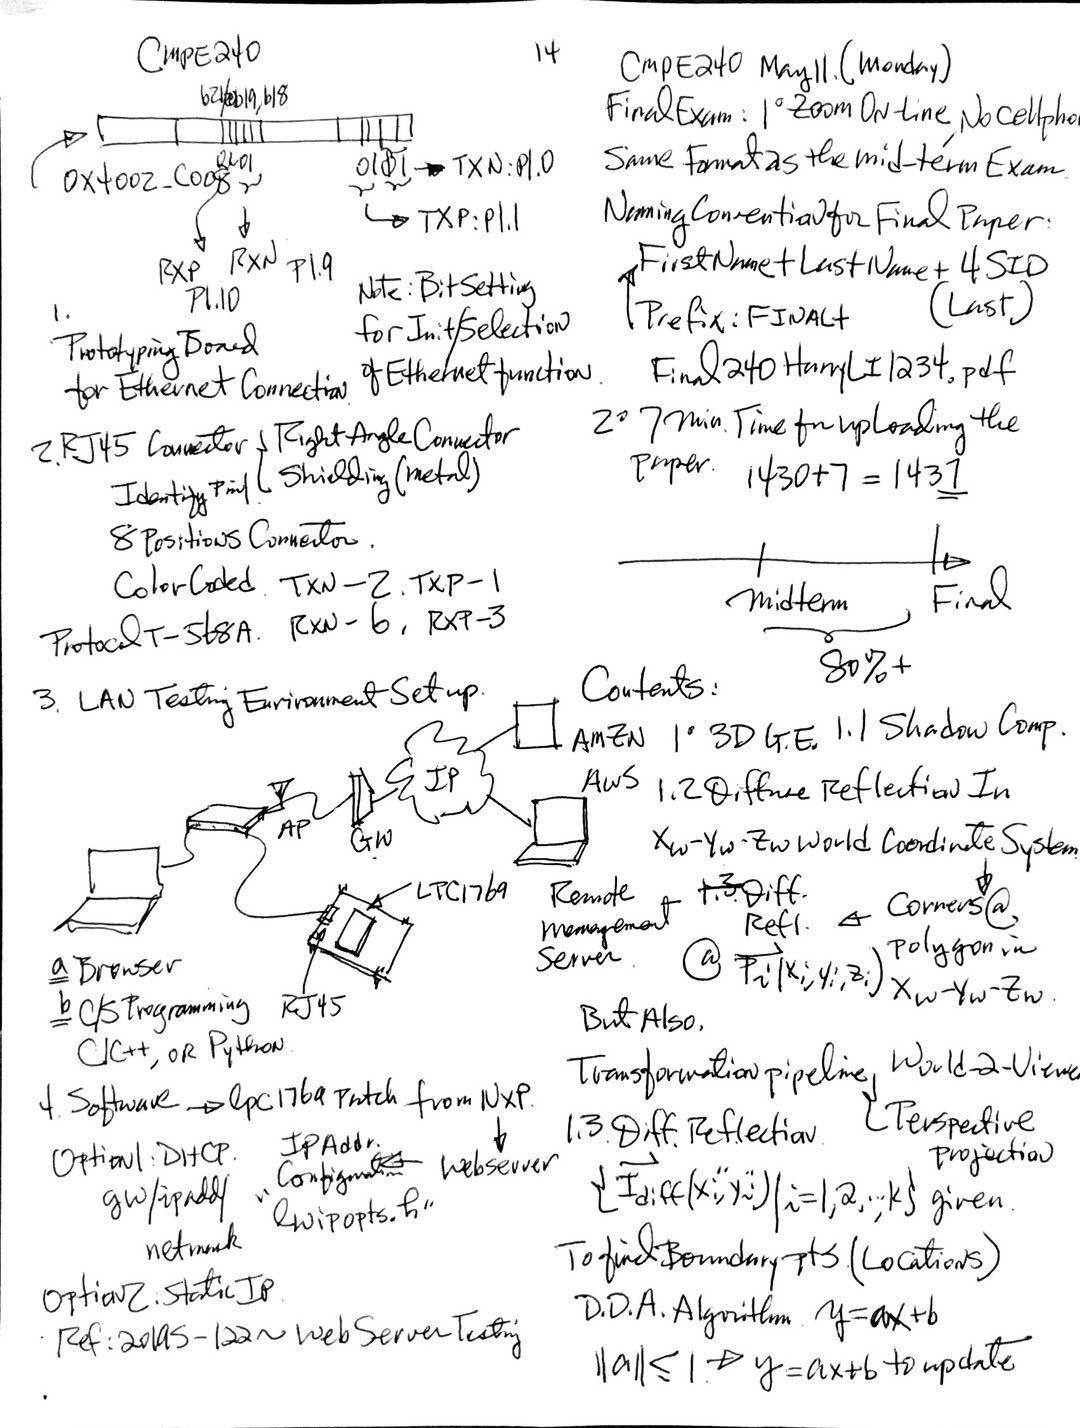 CMPE240
14
b21,b20,b19,b18
0X4002_C008
0101
0101 → TXN:P1.0
↳ TXP:P1.1
RXP
P1.10
RXN P1.9
Note: Bit Setting
for Init/Selection
of Ethernet function.
1.
Prototyping Board
for Ethernet Connection
2. RJ45 Connector { Right Angle Connector
Identify Pin1 Shielding (metal)
8 Positions Connector.
Color Coded. TXN-2. TXP-1
Protocol T-568A. RXN-6, RXP-3
3. LAN Testing Environment Set up.
IP
AP
GW
AMZN
AWS
LPC1769
RJ45
Remote
management
Server.
a Browser
b C/S Programming
C/C++, OR Python.
4. Software → lpc1769 Patch from NXP.
Webserver
Option1: DHCP.
gw/ipadd/
network
IP Addr.
Configuration
"lwipopts.h"
Option2: Static IP
Ref: 2019S-122~ Web Server Testing
CMPE240 May 11. (Monday)
Final Exam: 1° Zoom On-Line, No Cellpho
Same Format as the mid-term Exam.
Naming Convention for Final Paper:
First Name + Last Name + 4 SID
(Last)
Prefix: FINAL+
Final240 HarryLI1234.pdf
2° 7 min. Time for uploading the
paper. 1430+7 = 1437
midterm Final
80%+
Contents:
1° 3D G.E. 1.1 Shadow Comp.
1.2 Diffuse Reflection In
Xw-Yw-Zw World Coordinate System
1.3 Diff.
Refl. ← Corners @
polygon in
Xw-Yw-Zw.
@ Pi(xi,yi,zi)
But Also,
Transformation pipeline, World-2-Viewe
Perspective
projection
1.3. Diff. Reflection
{Idiff(xi",yi")|i=1,2,..,K} given.
To find Boundary pts (Locations)
D.D.A. Algorithm y=ax+b
||a||≤1. → y=ax+b to update